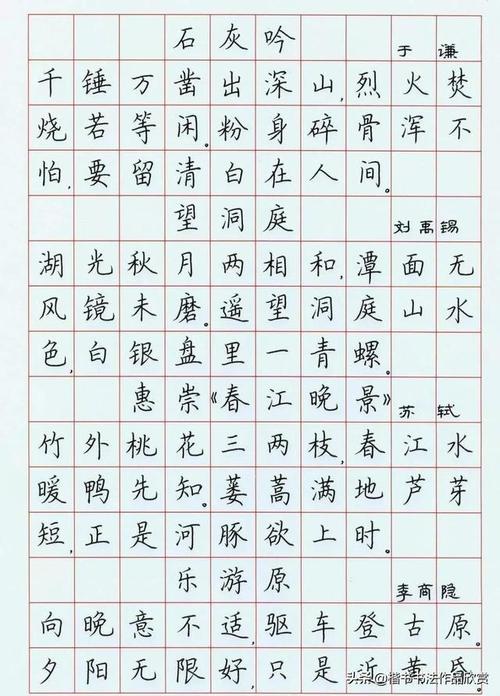 石灰吟 于谦
千锤万凿出深山,烈火焚
烧若等闲。粉身碎骨浑不
怕,要留清白在人间。
望洞庭 刘禹锡
湖光秋月两相和,潭面无
风镜未磨。遥望洞庭山水
色,白银盘里一青螺。
惠崇《春江晚景》 苏轼
竹外桃花三两枝,春江水
暖鸭先知。蒌蒿满地芦芽
短,正是河豚欲上时。
乐游原 李商隐
向晚意不适,驱车登古原。
夕阳无限好,只是近黄昏
头条@楷书书法作品欣赏